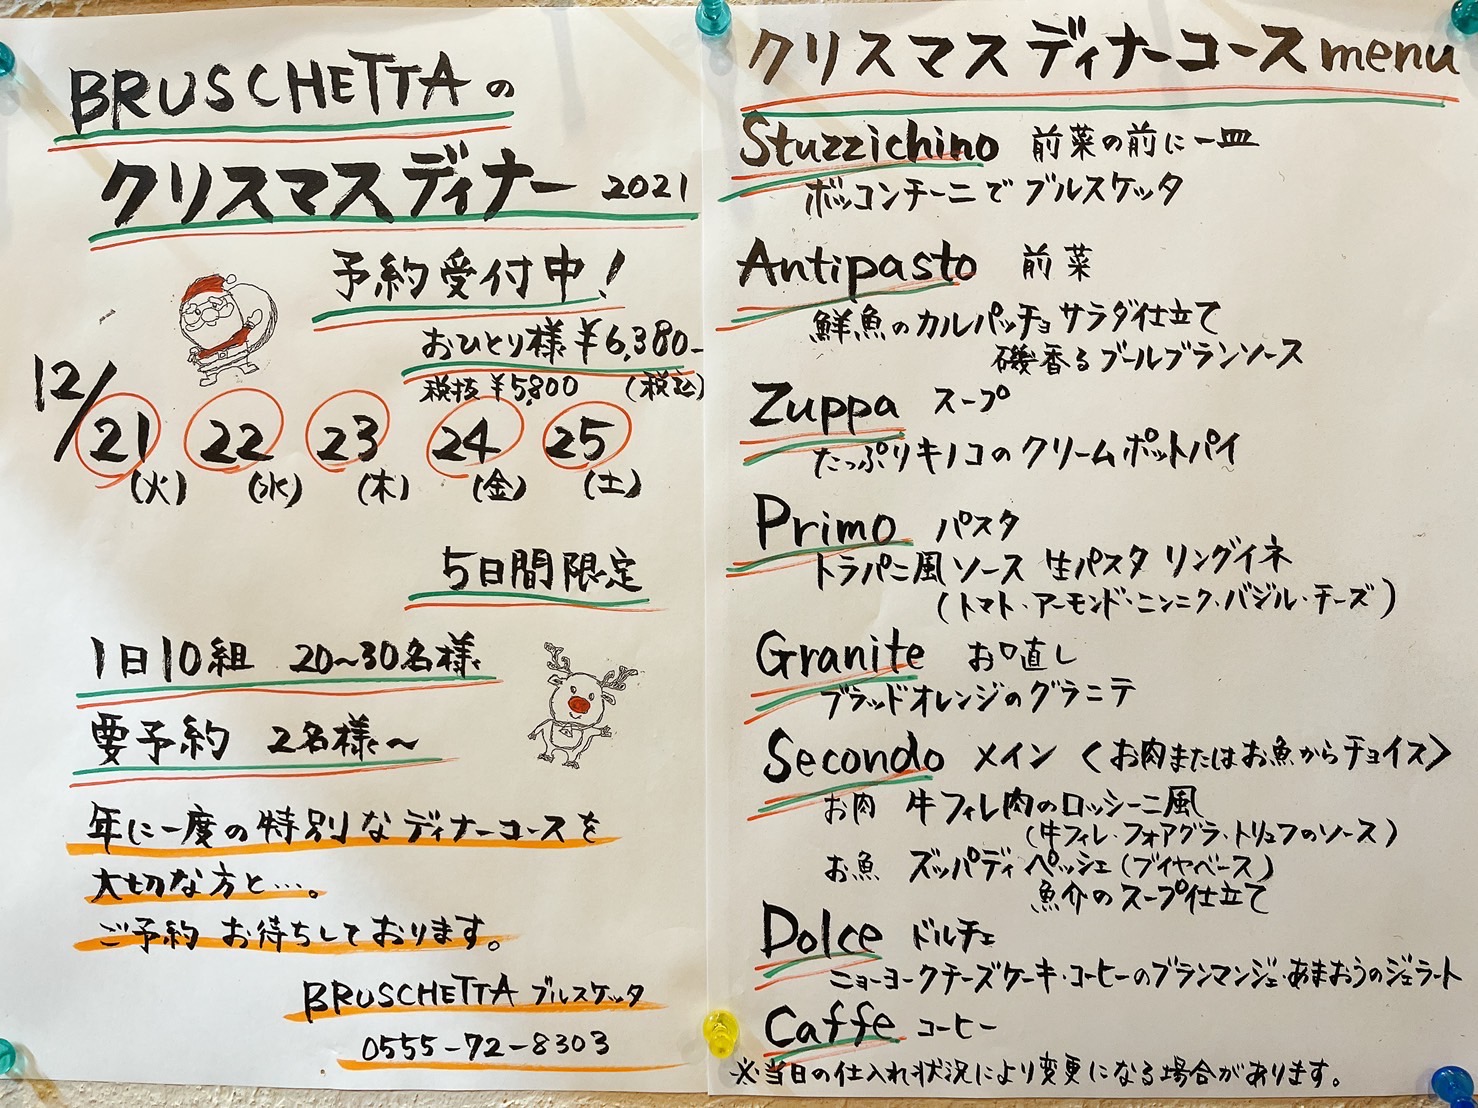 BRUSCHETTAの
クリスマスディナー 2021
予約受付中！
おひとり様 ¥6,380-
税抜 ¥5,800 (税込)
12/21 22 23 24 25
(火) (水) (木) (金) (土)
5日間限定
1日10組 20〜30名様
要予約 2名様〜
年に一度の特別なディナーコースを
大切な方と…。
ご予約 お待ちしております。
BRUSCHETTA ブルスケッタ
0555-72-8303
クリスマスディナーコースmenu
Stuzzichino 前菜の前に一皿
ボッコンチーニで ブルスケッタ
Antipasto 前菜
鮮魚のカルパッチョ サラダ仕立て
磯香るブールブランソース
Zuppa スープ
たっぷりキノコのクリームポットパイ
Primo パスタ
トラパニ風ソース 生パスタ リングイネ
(トマト・アーモンド・ニンニク・バジル・チーズ)
Granite お口直し
ブラッドオレンジのグラニテ
Secondo メイン 〈お肉またはお魚からチョイス〉
お肉 牛フィレ肉のロッシーニ風
(牛フィレ・フォアグラ・トリュフのソース)
お魚 ズッパディペッシェ(ブイヤベース)
魚介のスープ仕立て
Dolce ドルチェ
ニューヨークチーズケーキ・コーヒーのブランマンジェ・あまおうのジェラート
Caffe コーヒー
※当日の仕入れ状況により変更になる場合があります。